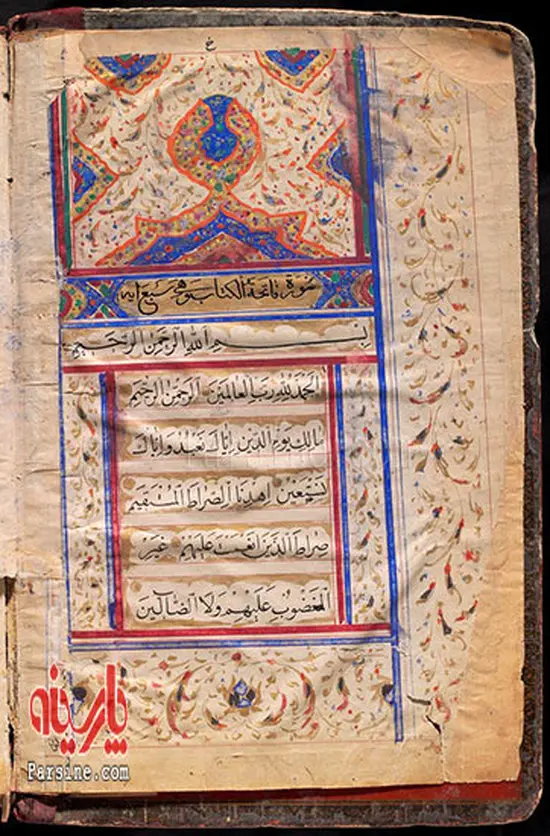 ع
سورة فاتحة الكتاب وهى سبع ايه
بِسْمِ اللهِ الرَّحْمٰنِ الرَّحِيمِ
اَلْحَمْدُ لِلّٰهِ رَبِّ الْعَالَمِينَ اَلرَّحْمٰنِ الرَّحِيمِ
مَالِكِ يَوْمِ الدِّينِ اِيَّاكَ نَعْبُدُ وَاِيَّاكَ
نَسْتَعِينُ اِهْدِنَا الصِّرَاطَ الْمُسْتَقِيمَ
صِرَاطَ الَّذِينَ اَنْعَمْتَ عَلَيْهِمْ غَيْرِ
الْمَغْضُوبِ عَلَيْهِمْ وَلَا الضَّالِّينَ
پارسینه
Parsine.com